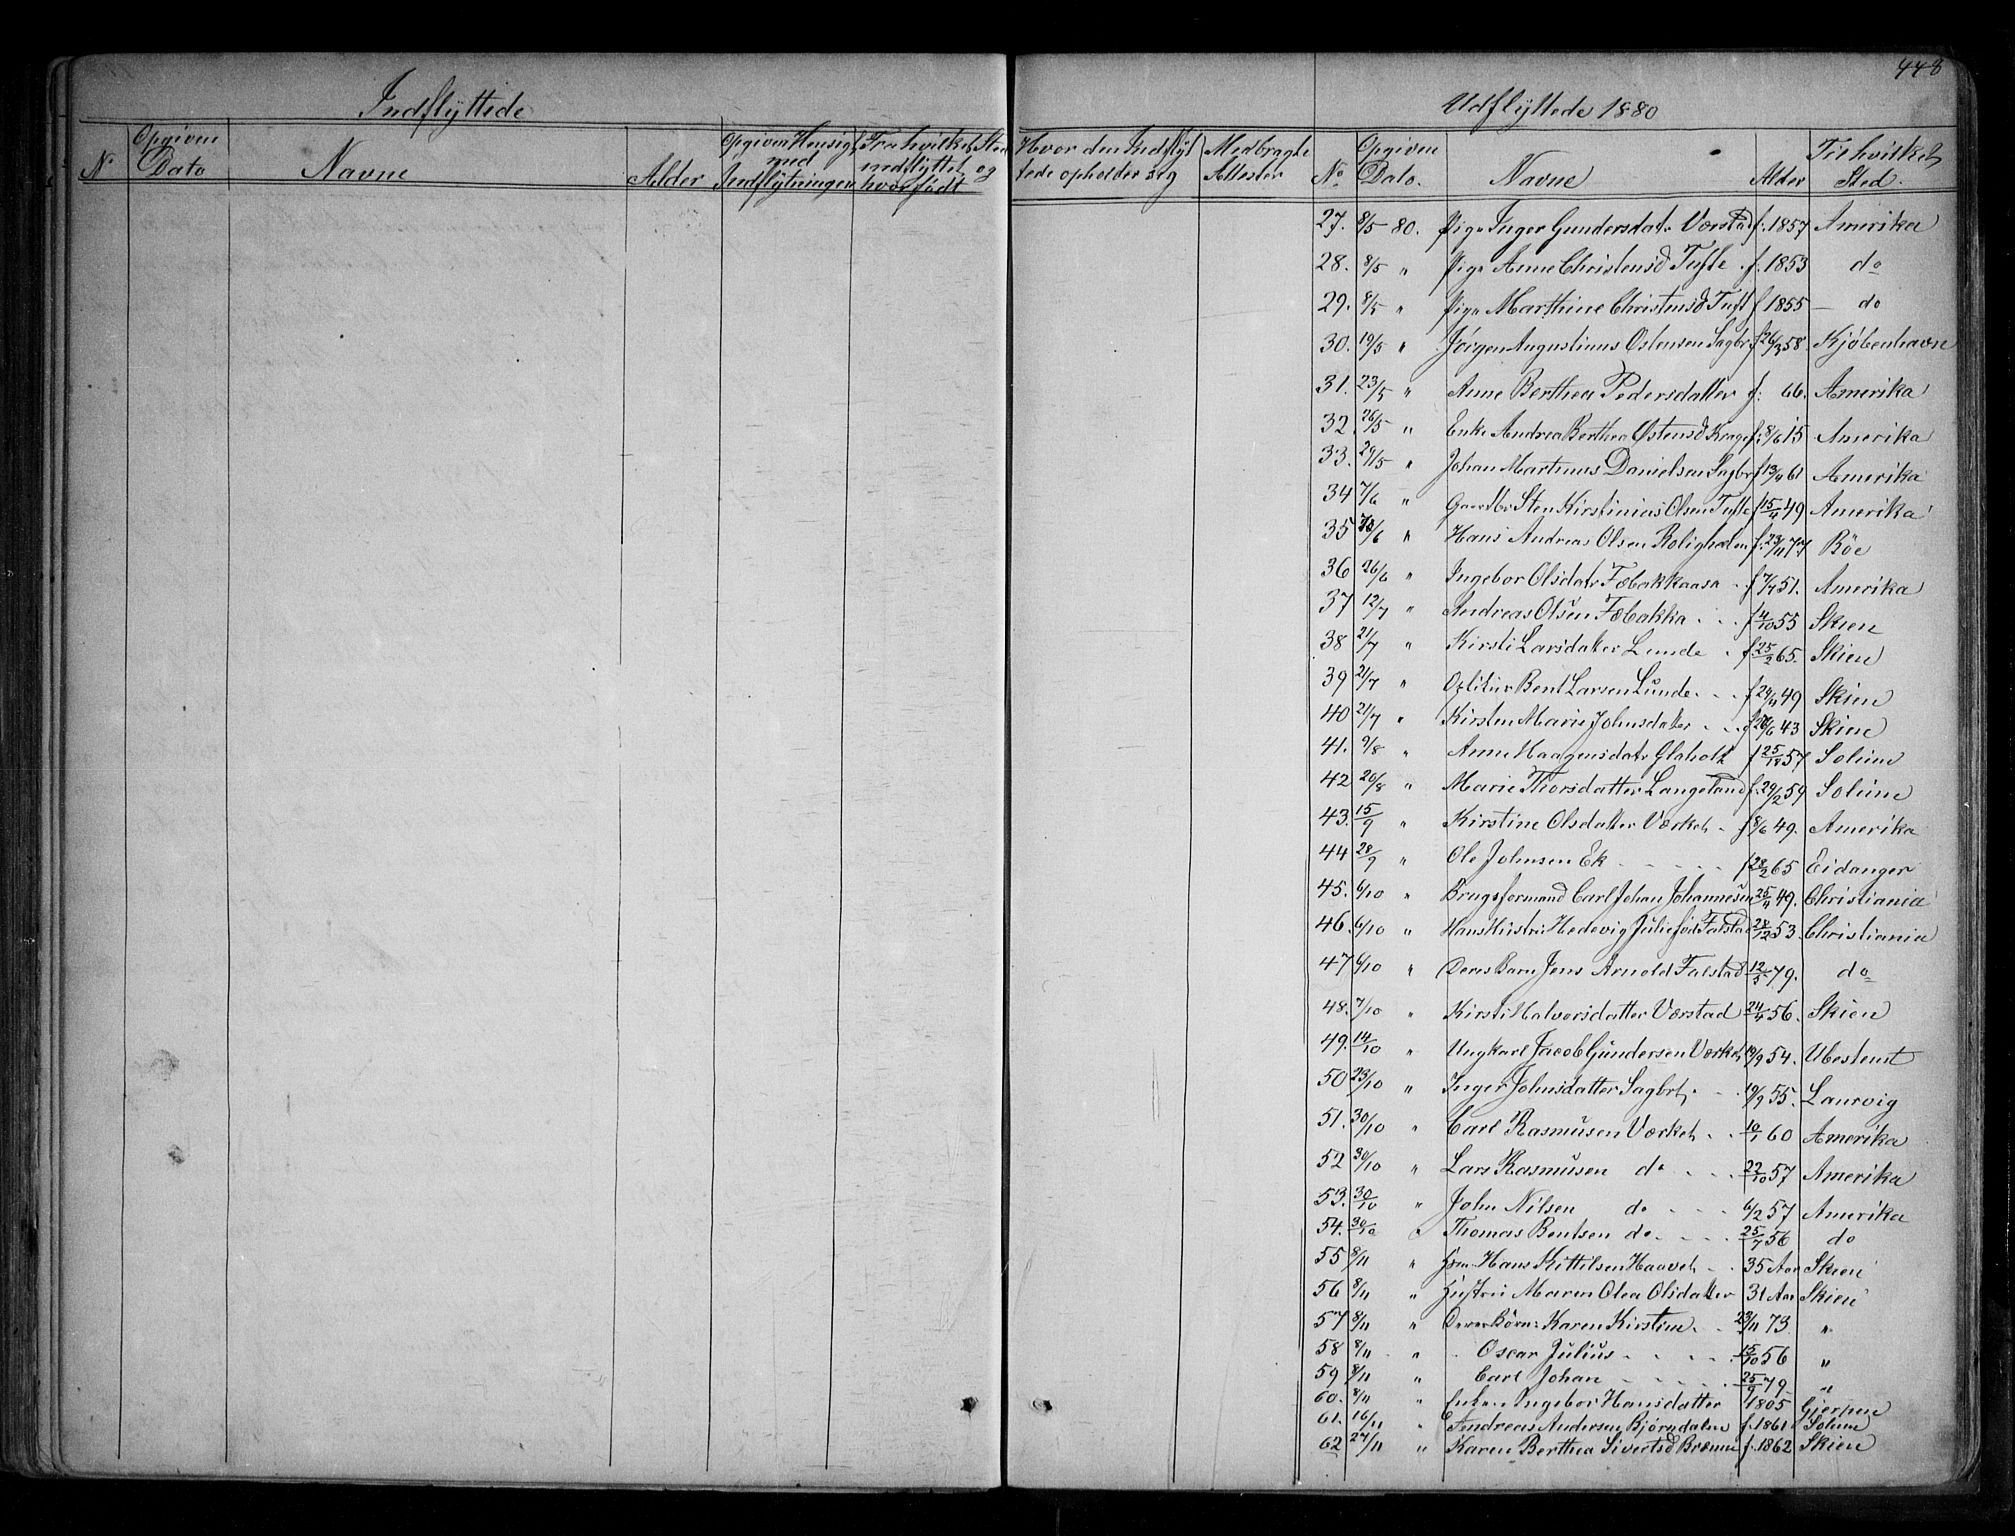 448
Indflyttede
Udflyttede 1880
N Opgiven Dato Navne Alder Opgiven Hensigt med Indflytningen Fra hvilket Sted indflyttet og hvor født Hvor den Indflyttede opholder sig Medbragte Attester
No. Opgiven Dato. Navne Alder Til hvilket Sted.
27. 8/5 80. Pige Inger Gundersdatr Værstad f. 1857 Amerika
28. 8/5 " Pige Anne Christensd Tufte f. 1853 do
29. 8/5 " Pige Marthine Christensd Tuft f 1855 — do
30. 19/5 " Jörgen Augustinus Östensen Sagbr f 26/3 58 Kjøbenhavn
31. 23/5 " Anne Berthea Pedersdatter f: 66. Amerika
32. 26/5 " Enke Andrea Berthea Östensd Krage f: 8/6 15 Amerika
33. 29/5 " Johan Martinus Danielsen Sagbr f 13/11 61 Amerika
34 7/6 " Gaardbr Sten Kirstinius Olsen Tufte f 15/4 49 Amerika
35 /6 " Hans Andreas Olsen Rolighalen f. 23/11 77 Röe
36 26/6 " Ingebor Olsdatr Fæbakkaasa f 7/7 51. Amerika
37 12/7 " Andreas Olsen Fæbakka . . f 4/10 55 Skien
38 21/7 " Kirsti Larsdatter Lunde . f 25/2 65. Skien
39 21/7 " Bent Larsen Lunde . . f 29/11 49 Skien
40 21/7 " Kirsten Marie Johnsdatter . . f /6 43 Skien
41. 9/8 " Anne Haagensdatr Glaholt f 25/12 57 Solum
42 20/8 " Marie Thorsdatter Langeland f. 29/2 59 Solum
43. 15/9 " Kirstine Olsdatter Værket . f 8/6 49. Amerika
44 28/9 " Ole Johnsen Ek . . . . . f 28/2 65 Eidanger
45. 6/10 " Brugsformand Carl Johan Johannesen 25/11 49. Christiania
46. 6/10 " Hans Hustru Hedevig Julie föd Falstad 28/12 53. Christiania
47 6/10 " Deres Barn Jens Arnold Falstad 12/3 79. do
48. 7/10 " Kirsti Halvorsdatter Værstad 24/4 56. Skien
49. 14/10 " Ungkarl Jacob Gundersen Værket 19/9 54. Ubestemt
50 23/10 " Inger Johnsdatter Sagbrt . . . 19/9 55. Laurvig
51. 30/10 " Carl Rasmusen Værket . . 10/1 60 Amerika
52 30/10 " Lars Rasmusen do . . . 22/10 57 Amerika
53. 30/10 " John Nilsen do . . . . 6/2 57 Amerika
54. 30/10 " Thomas Bentsen do . . . . 25/7 56 do
55 8/11 " Hans Kittilsen Haavet . . 35 Aar Skien
56 8/11 " Hustru Maren Olea Olsdatter 31 Aar Skien
57 8/11 " Deres Börn: Karen Kirstine . . 23/11 73 "
58 8/11 " Oscar Julius . . . . . 15/10 56 "
59 8/11 " Carl Johan . . . . . 25/9 79 "
60. 8/11 " Enken Ingebor Hansdatter 1805 Gjerpen
61. 16/11 " Andreas Andersen Bjørndalen f. 1861 Solum
62 27/11 " Karen Berthea Sivertsd Bræmne f. 1862 Skien